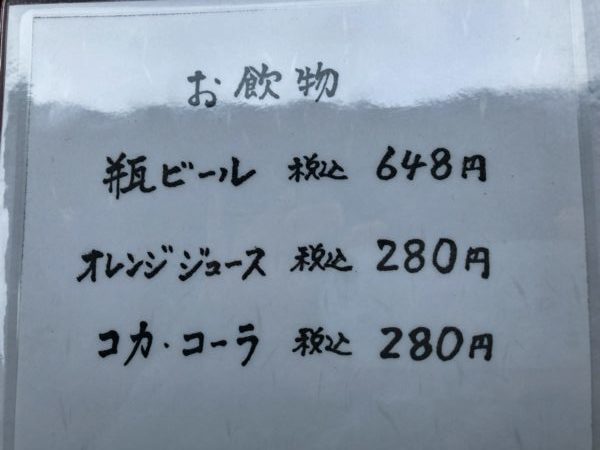 お飲物
瓶ビール 税込 648円
オレンジジュース 税込 280円
コカ・コーラ 税込 280円